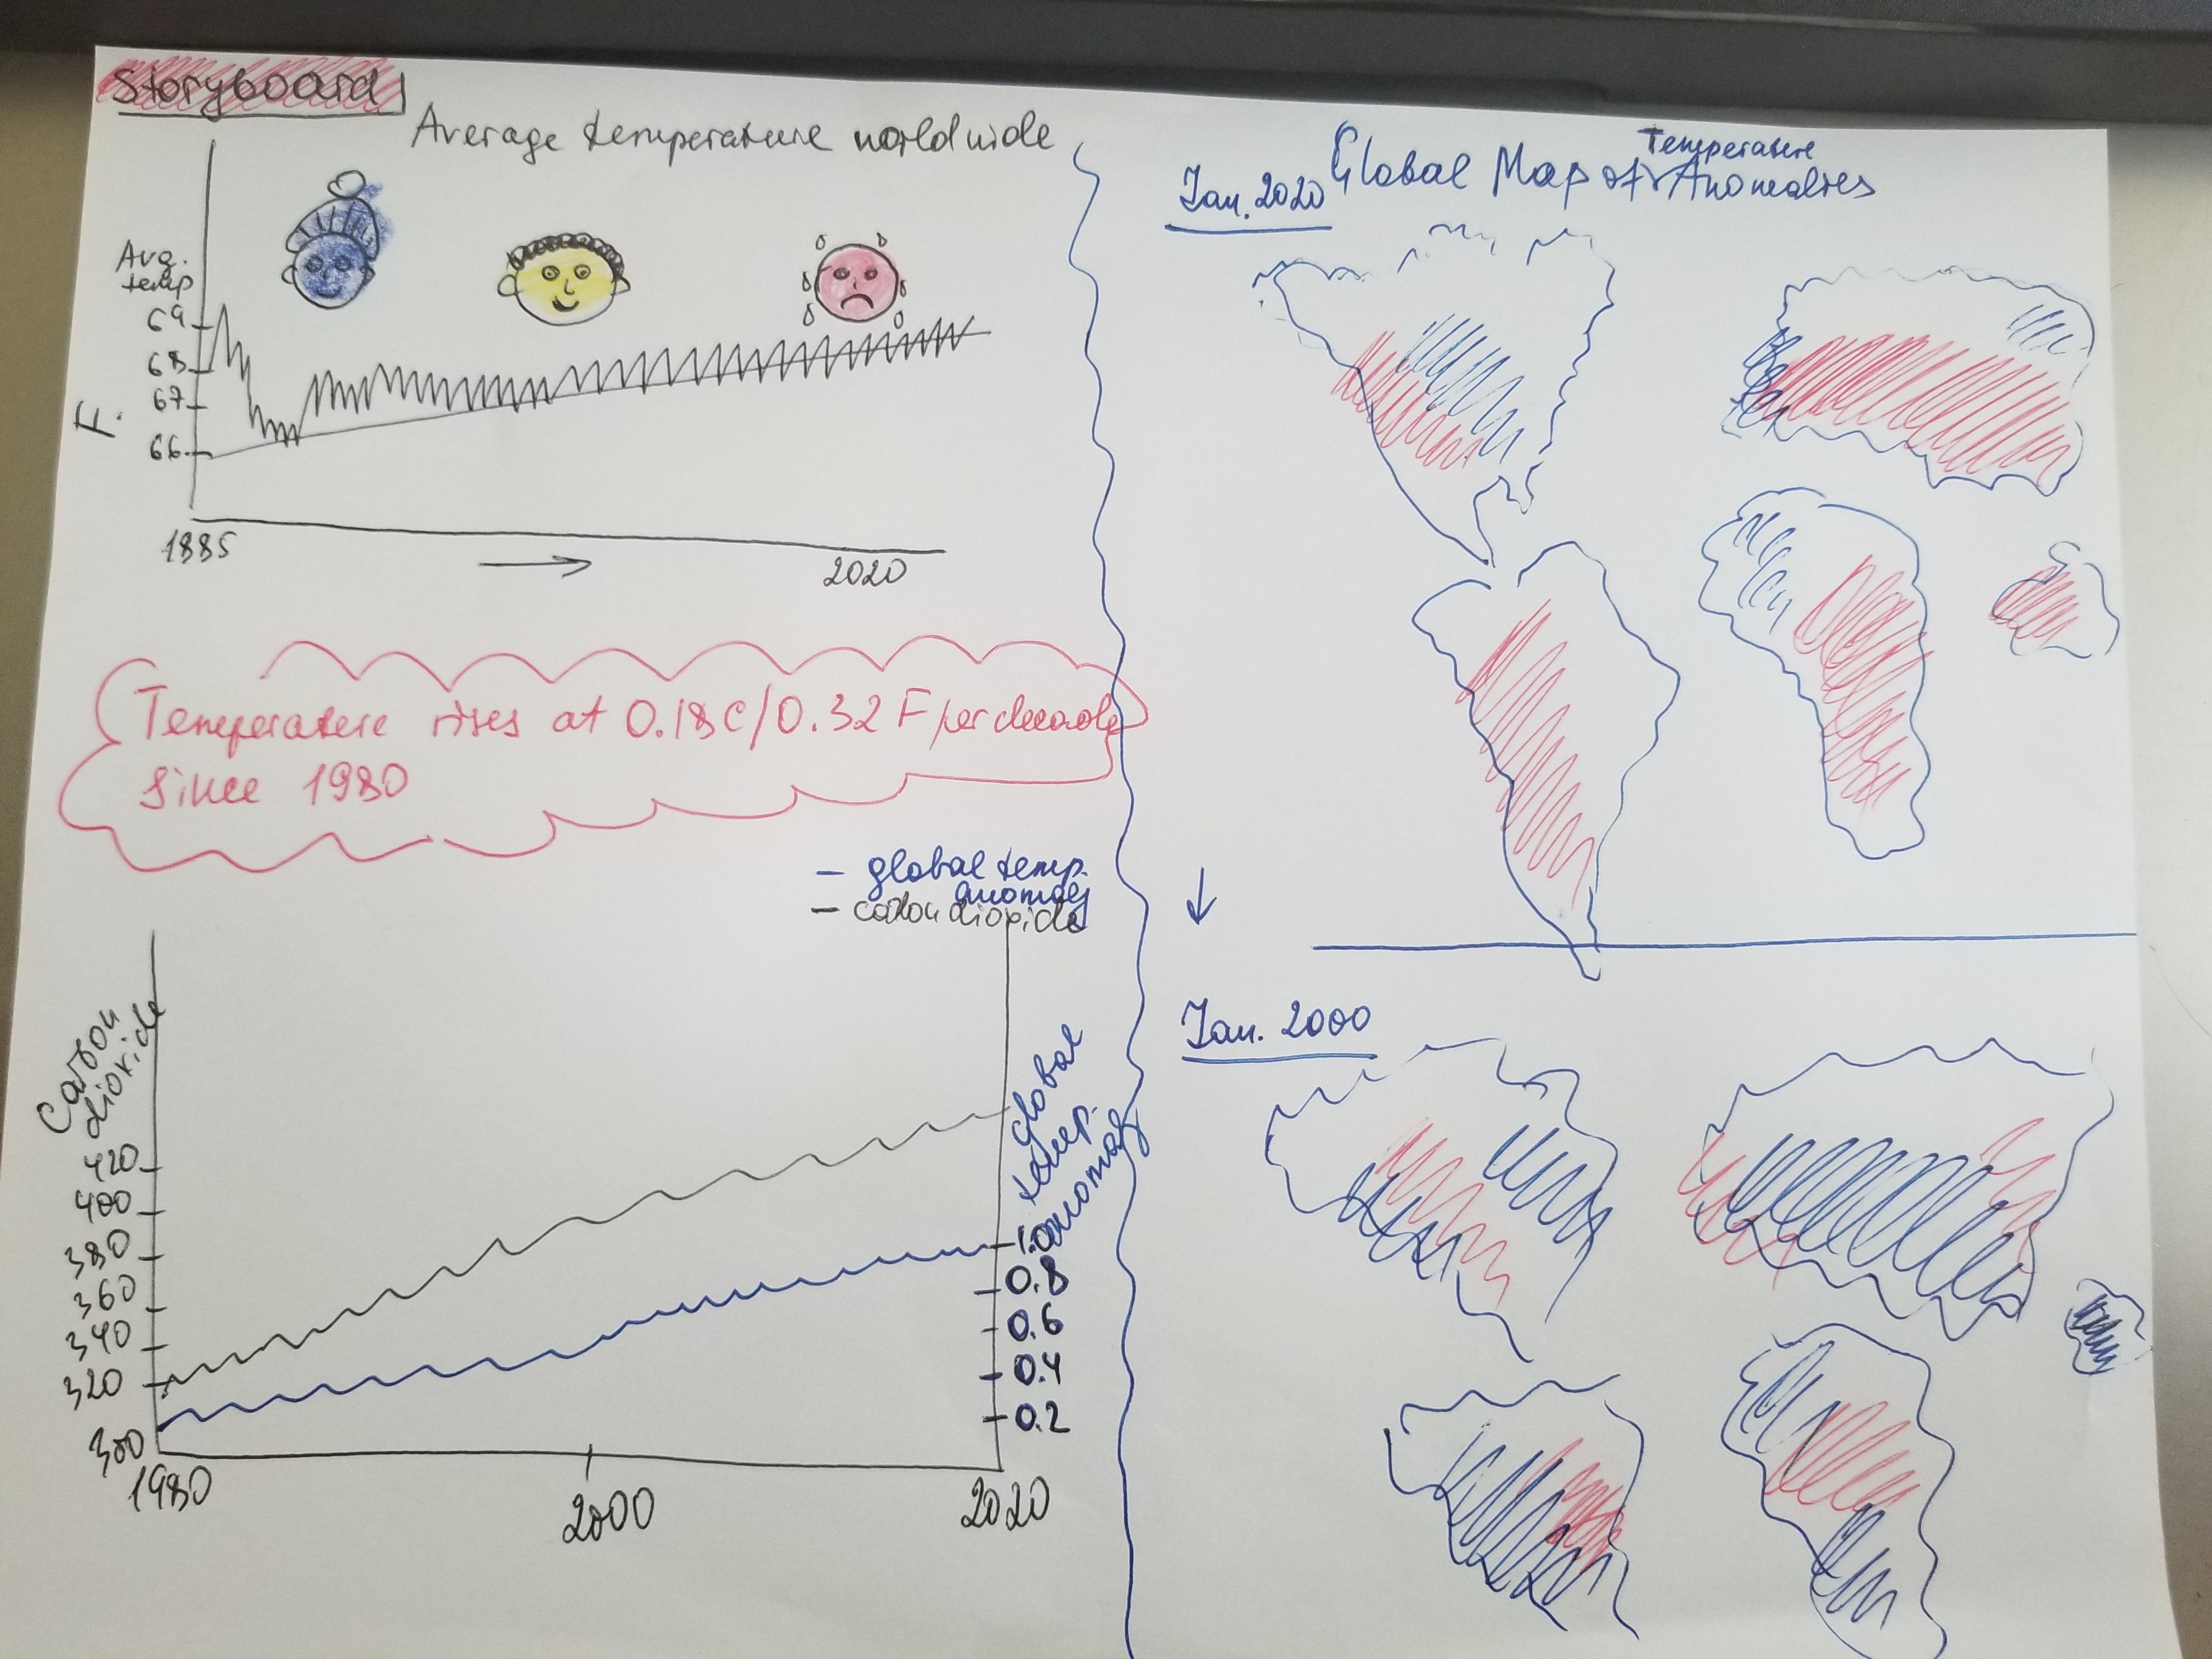 Storyboard
Average temperature worldwide
Avg.
temp
69
68
67
66
F.
1885
2020
Temperature rises at 0.18C/0.32F per decade
since 1980
global temp.
anomaly
carbon dioxide
Carbon
dioxide
420
400
380
360
340
320
300
1980
2000
2020
global
temp.
anomaly
1.0
0.8
0.6
0.4
0.2
Jan. 2020
Global Map of Temperature Anomalies
Jan. 2000